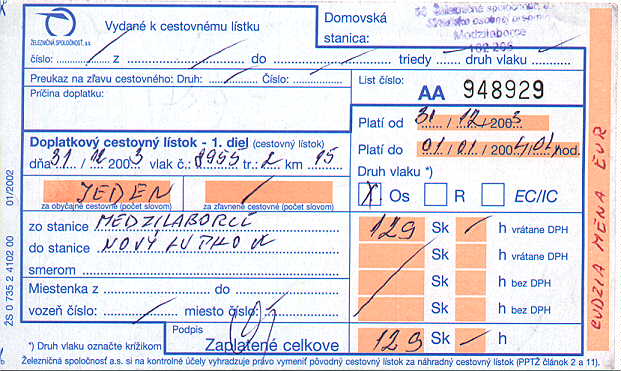 ŽELEZNIČNÁ SPOLOČNOSŤ, a.s.
Vydané k cestovnému lístku
Domovská
stanica:
Medzilaborce
číslo: z do triedy druh vlaku
Preukaz na zľavu cestovného: Druh: Číslo:
Príčina doplatku:
List číslo:
AA 948929
Platí od 31 / 12 / 2003
Platí do 01 / 01 / 2004 / 01 hod.
Doplatkový cestovný lístok - 1. diel (cestovný lístok)
dňa 31 / 12 2003 vlak č.: 8955 tr.: 2 km 15
Druh vlaku *)
X Os R EC/IC
JEDEN
za obyčajné cestovné (počet slovom) za zľavnené cestovné (počet slovom)
zo stanice MEDZILABORCE
do stanice NOVÝ ŁUPKOW
smerom
129 Sk h vrátane DPH
Sk h vrátane DPH
Sk h bez DPH
Sk h bez DPH
Miestenka z do
vozeň číslo: miesto číslo:
Podpis
*) Druh vlaku označte krížikom
Zaplatené celkove 129 Sk h
Železničná spoločnosť a.s. si na kontrolné účely vyhradzuje právo vymeniť pôvodný cestovný lístok za náhradný cestovný lístok (PPTŽ článok 2 a 11).
ŽS 0 735 2 4102 00 01/2002
CUDZIA MENA EUR